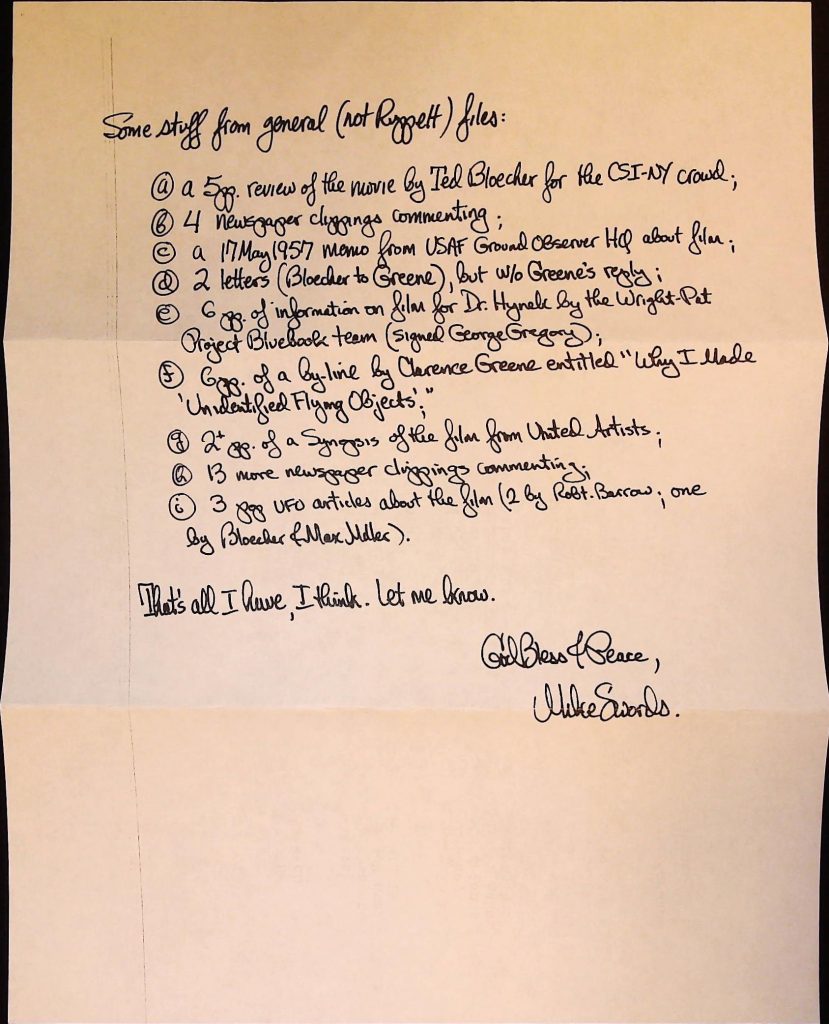 Some stuff from general (not Ruppelt) files:
ⓐ a 5pp. review of the movie by Ted Bloecher for the CSI-NY crowd;
ⓑ 4 newspaper clippings commenting;
ⓒ a 17 May 1957 memo from USAF Ground Observer HQ about film;
ⓓ 2 letters (Bloecher to Greene), but w/o Greene's reply;
ⓔ 6 pp. of information on film for Dr. Hynek by the Wright-Pat
Project Bluebook team (signed George Gregory);
ⓕ 6pp. of a by-line by Clarence Greene entitled "Why I Made
'Unidentified Flying Objects';"
ⓖ 2+ pp. of a Synopsis of the film from United Artists;
ⓗ 13 more newspaper clippings commenting;
ⓘ 3 pop UFO articles about the film (2 by Robt. Barrow; one
by Bloecher & Max Miller).
That's all I have, I think. Let me know.
God Bless & Peace,
Mike Swords.